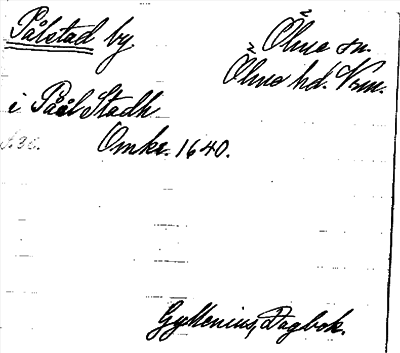 Pålstad by
Ölme sn.
Ölme hd. Vrm.
i Påål Stadh
s. 30.
Omkr. 1640.
Gyllenius, Dagbok.